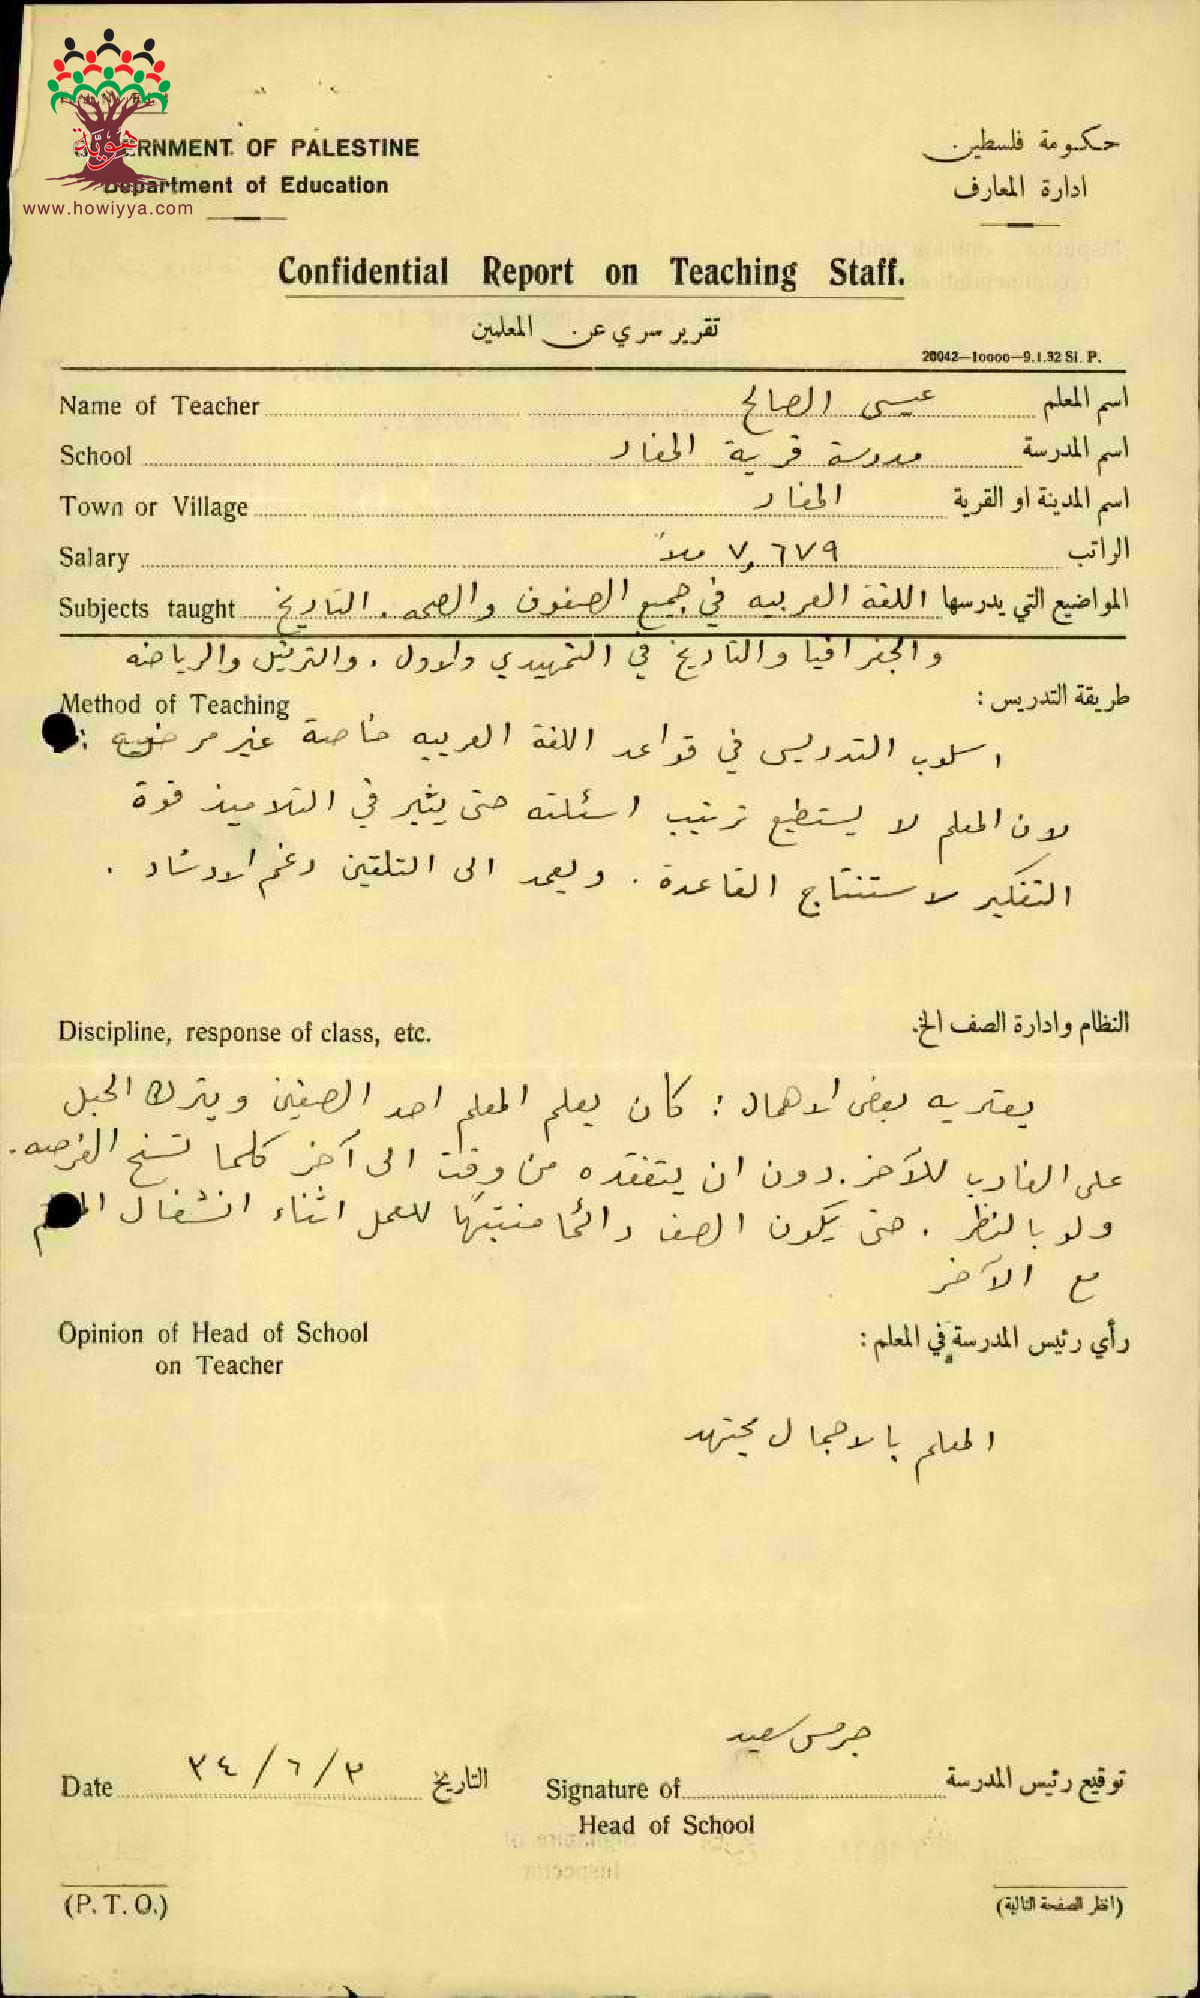 هوية
www.howiyya.com
GOVERNMENT OF PALESTINE
حكومة فلسطين
Department of Education
ادارة المعارف
Confidential Report on Teaching Staff.
تقرير سري عن المعلمين
20042—10000—9.1.32 Sl. P.
Name of Teacher عيسى الصالح اسم المعلم
School مدرسة قرية المغار اسم المدرسة
Town or Village المغار اسم المدينة او القرية
Salary ٧,٦٧٩ ملاً الراتب
Subjects taught اللغة العربيه في جميع الصفوف والصحه. التاريخ المواضيع التي يدرسها
والجغرافيا والتاريخ في التمهيدي والاول. والترتيل والرياضه
Method of Teaching طريقة التدريس :
اسلوب التدريس في قواعد اللغة العربيه خاصة غير مرضيه :
لان المعلم لا يستطيع ترتيب اسئلته حتى يثير في التلاميذ قوة
التفكير لاستنتاج القاعدة. ويعمد الى التلقين رغم الارشاد.
Discipline, response of class, etc. النظام وادارة الصف الخ.
يعتريه بعض الاهمال : كان يعلم المعلم احد الصفين ويترك الحبل
على الغارب للآخر. دون ان يتفقده من وقت الى آخر كلما تسنح الفرصه.
ولو بالنظر. حتى يكون الصف دائما منتبهًا للعمل اثناء انشغال
مع الآخر
Opinion of Head of School رأي رئيس المدرسة في المعلم :
on Teacher
المعلم بالاجمال مجتهد
جرس سعيد
Date ٣٤/٦/٣ التاريخ Signature of توقيع رئيس المدرسة
Head of School
(P. T. O.) (انظر الصفحة التالية)